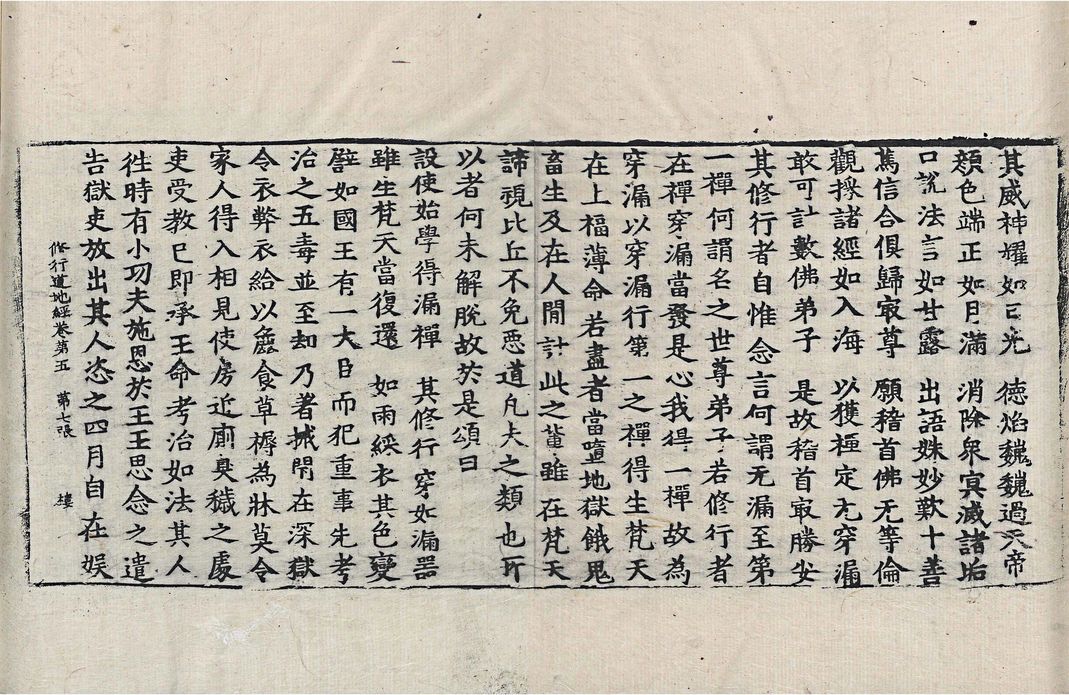 其威神耀如日光　德焰巍巍過天帝
顏色端正如月滿　消除衆冥滅諸垢
口說法言如甘露　出語姝妙歎十善
篤信合俱歸㝡尊　願稽首佛无等倫
觀採諸經如入海　以獲種定无穿漏
敢可計數佛弟子　是故稽首㝡勝安
其修行者自惟念言何謂无漏至第
一禪何謂名之世尊弟子若修行者
在禪穿漏當發是心我得一禪故為
穿漏以穿漏行第一之禪得生梵天
在上福薄命若盡者當墮地獄餓鬼
畜生及在人間計此之輩雖在梵天
諦視比丘不免惡道凡夫之類也所
以者何未解脫故於是頌曰
設使始學得漏禪　其修行穿如漏器
雖生梵天當復還　如雨綵衣其色變
譬如國王有一大臣而犯重事先考
治之五毒並至却乃著械閉在深獄
令衣弊衣給以麤食草褥為牀莫令
家人得入相見使房近廁臭穢之處
吏受教已即承王命考治如法其人
往時有小功夫施恩於王王思念之遣
告獄吏放出其人恣之四月自在娛
修行道地經卷第五　第七張　樓